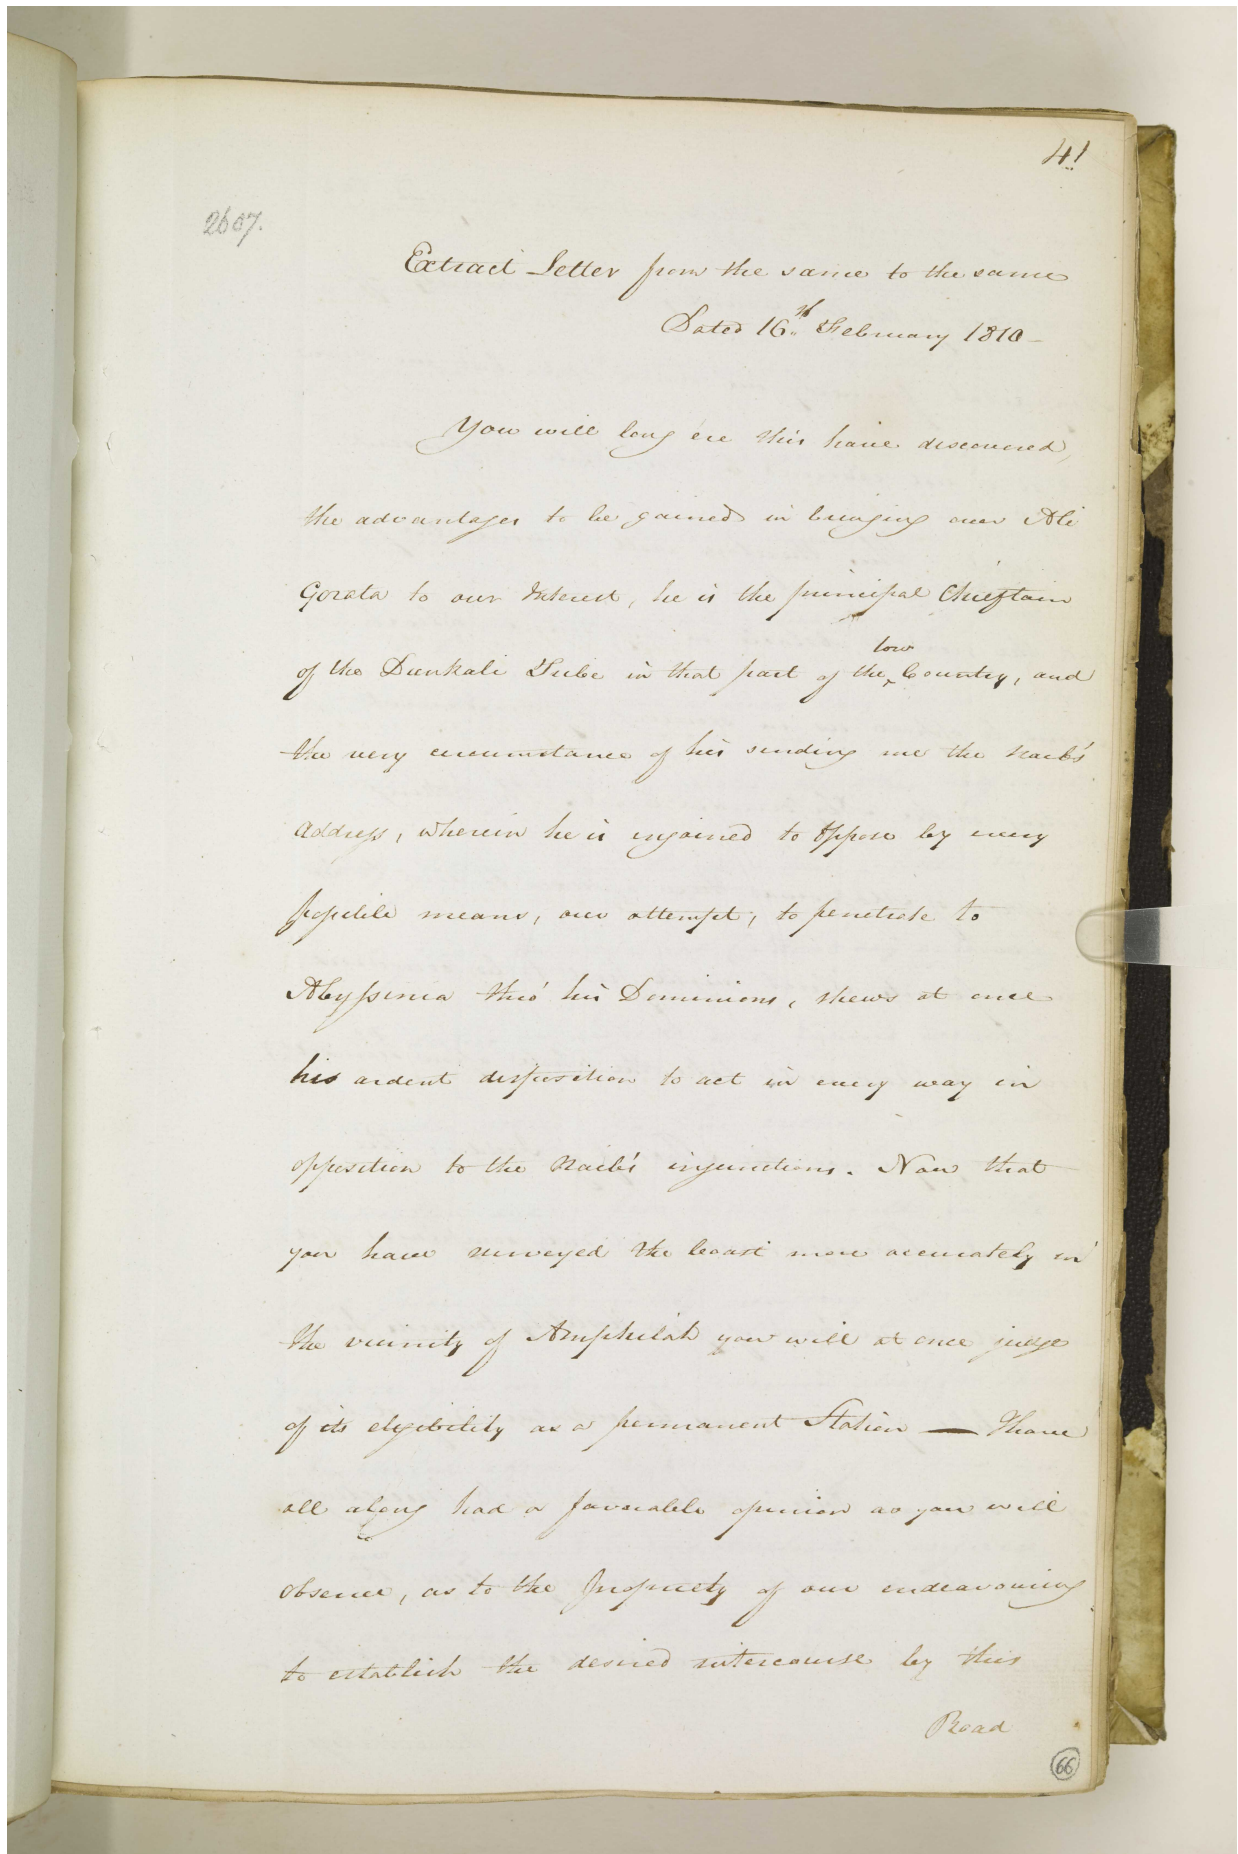 41
2607.
Extract Letter from the same to the same
Dated 16th February 1810
You will long ere this have discovered,
the advantages to be gained in bringing over Ali
Gorata to our Interest, he is the principal Chieftain
low
of the Dunkali Tribe in that part of the Country, and
the very circumstance of his sending me the Naib's
Address, wherein he is enjoined to oppose by every
possible means, our attempt, to penetrate to
Abyssinia thro' his Dominions, shews at once
his ardent disposition to act in every way in
opposition to the Naib's injunctions. Now that
you have surveyed the Coast more accurately in
the vicinity of Amphilah you will at once judge
of its elegibility as a permanent Station — I have
all along had a favorable opinion as you will
observe, as to the propriety of our endeavouring
to establish the desired intercourse by this
Road
66